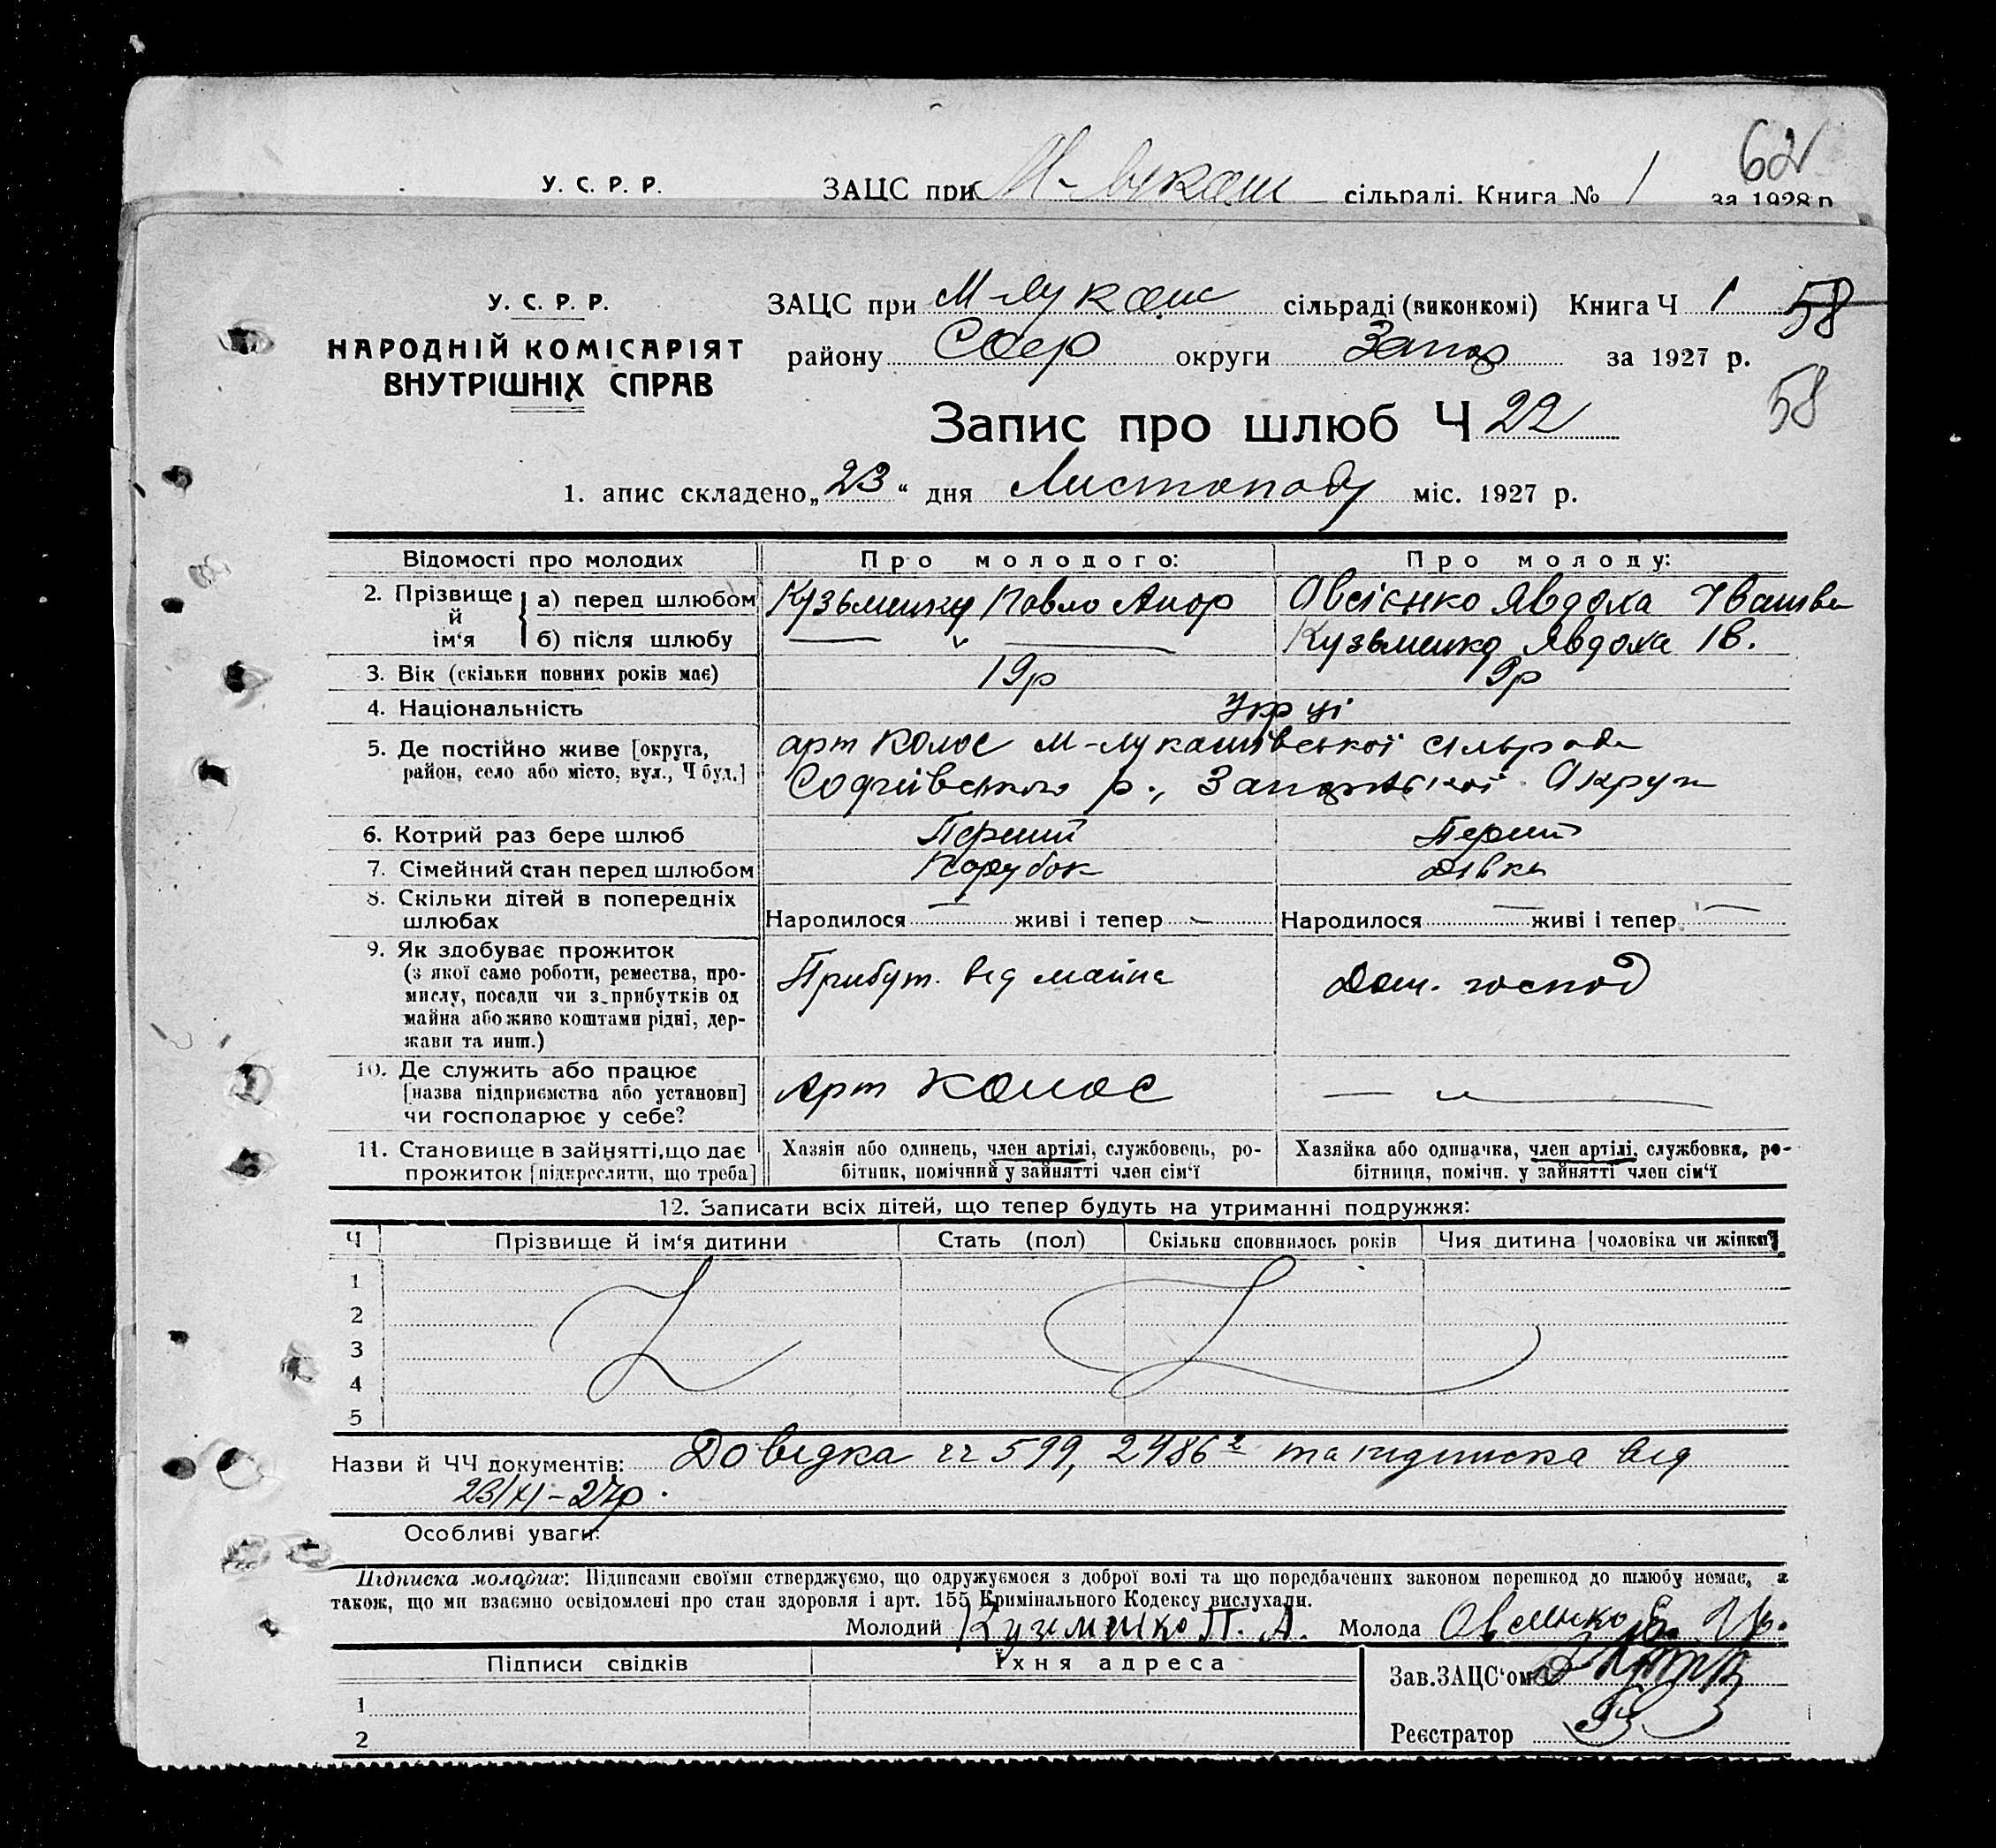 62
У. С. Р. Р. ЗАЦС при сільраді. Книга № 1 за 1928 р.
У. С. Р. Р. ЗАЦС при М-Лукаш сільраді (виконкомі) Книга Ч 1 58
НАРОДНІЙ КОМІСАРІЯТ району Соф округи Запор за 1927 р.
ВНУТРІШНІХ СПРАВ 58
Запис про шлюб Ч 22
1. апис складено „23“ дня Листопаду міс. 1927 р.
Відомості про молодих Про молодого: Про молоду:
2. Прізвище й ім‘я а) перед шлюбом Кузьменко Павло Овсієнко Явдоха
б) після шлюбу — „ — Кузьменко Явдоха Ів.
3. Вік (скільки повних років має) 19р 19р
4. Національність Укр ці
5. Де постійно живе [округа, арт Колос М-Лукашівської сільради
район, село або місто, вул., Ч буд.] Софиївського р., Округи
6. Котрий раз бере шлюб Перший Перший
7. Сімейний стан перед шлюбом Парубок Дівка
8. Скільки дітей в попередніх
шлюбах Народилося — живі і тепер — Народилося — живі і тепер —
9. Як здобуває прожиток
(з якої саме роботи, ремества, про- Прибут. від майна Дом. господ
мислу, посади чи з прибутків од
майна або живе коштами рідні, дер-
жави та инш.)
10. Де служить або працює
[назва підприємства або установи] Арт Колос — „ —
чи господарює у себе?
11. Становище в зайнятті, що дає Хазяїн або одинець, член артілі, службовець, ро- Хазяйка або одиначка, член артілі, службовка, ро-
прожиток [підкреслити, що треба] бітник, помічний у зайнятті член сім‘ї бітниця, помічн. у зайнятті член сім‘ї
12. Записати всіх дітей, що тепер будуть на утриманні подружжя:
Ч Прізвище й ім‘я дитини Стать (пол) Скільки сповнилось років Чия дитина [чоловіка чи жінки]
1
2
3
4
5
Назви й ЧЧ документів: Довідка чч 599, 2486 та підписка від
23/XI-27р.
Особливі уваги:
Підписка молодих: Підписами своїми стверджуємо, що одружуємося з доброї волі та що передбачених законом перешкод до шлюбу немає, а
також, що ми взаємно освідомлені про стан здоровля і арт. 155 Кримінального Кодексу вислухали.
Молодий Кузменко П. А. Молода Овсиенко
Підписи свідків Їхня адреса Зав. ЗАЦС‘ом
1
2 Реєстратор